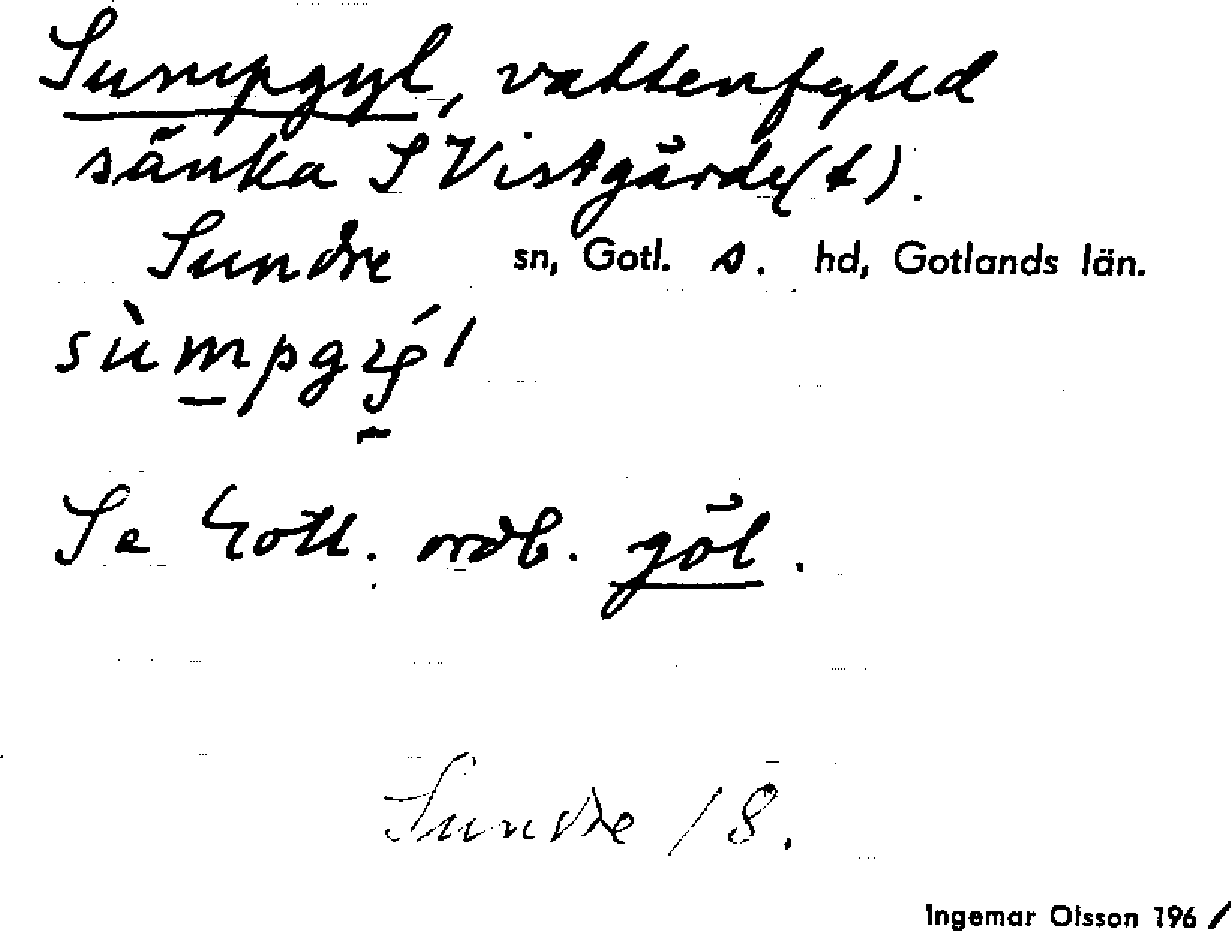 Sumpgyl, vattenfylld
sänka S Vistgärde(t).
Sundre sn, Gotl. s. hd, Gotlands län.
Se Gotl. ordb. göl.
Sundre / 8.
Ingemar Olsson 1961